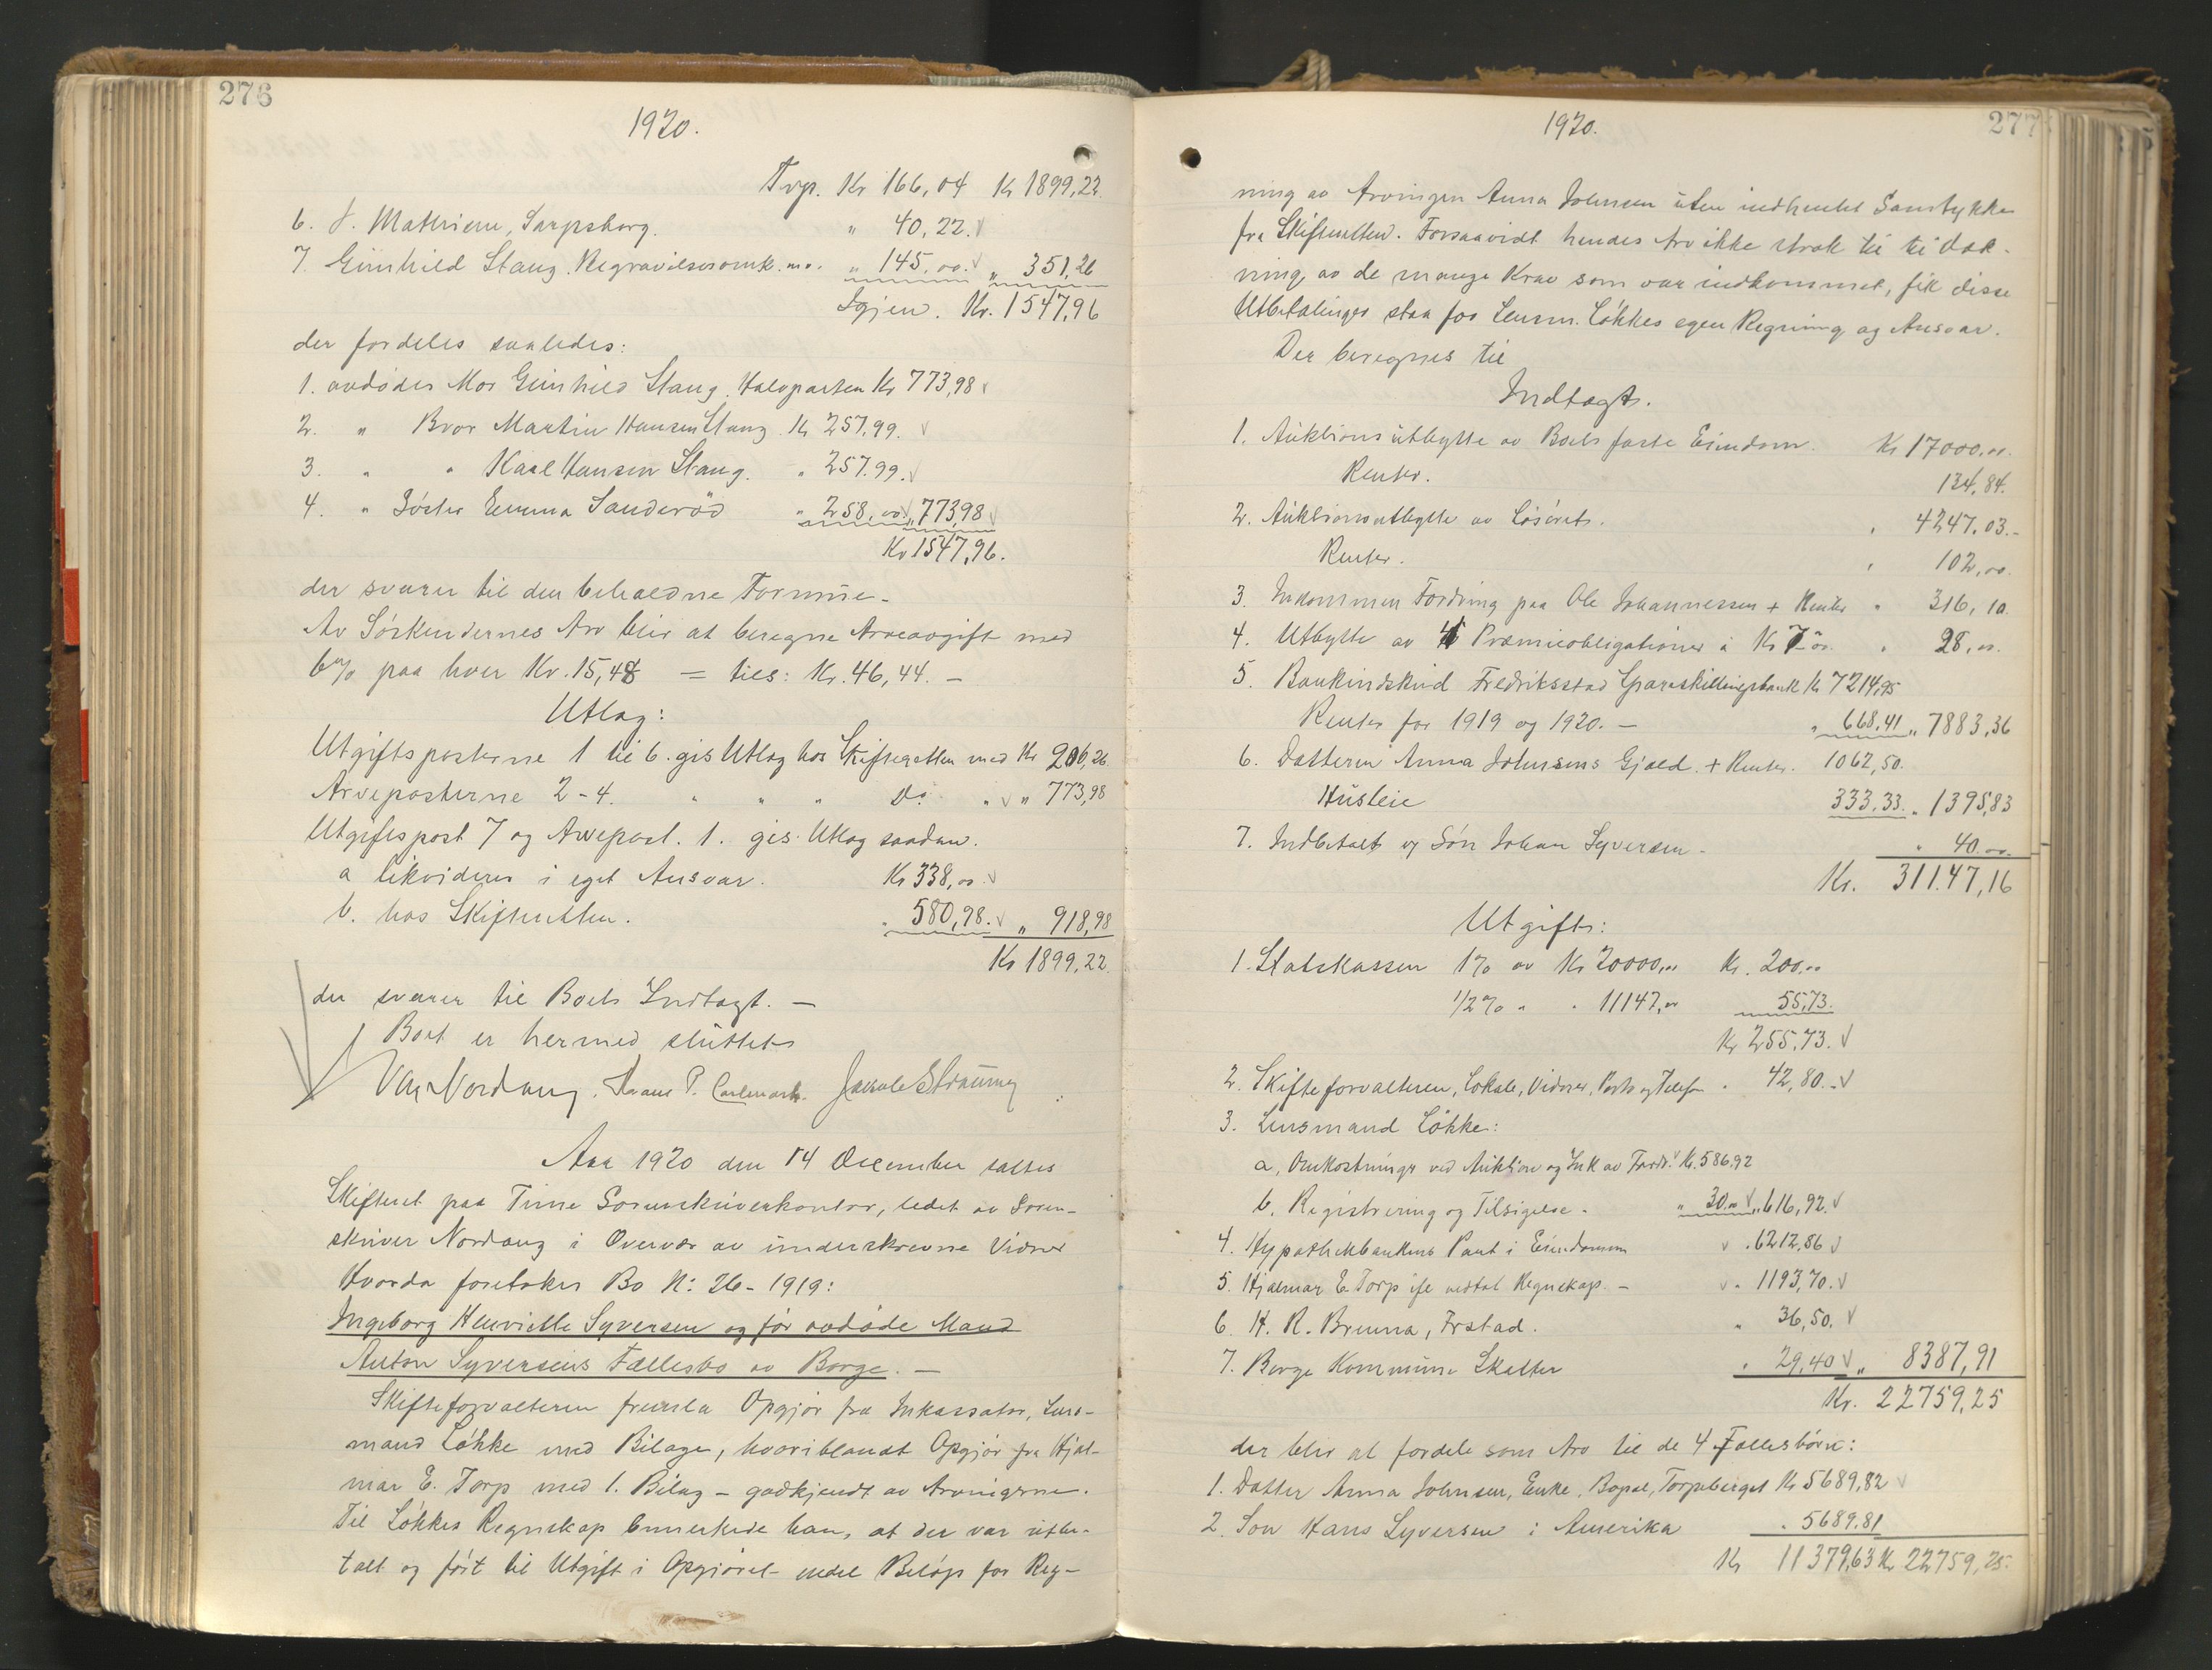 276
1920.
Trp. Kr 166,04 Kr 1899,22.
6. J. Mathiern, Sarpsborg. " 40,22.
7. Gunhild Stang. Begravelsesomk. m.v. " 145,00. " 351,26
Igjen. Kr. 1547,96
der fordeles saaledes:
1. avdödes Mor Gunhild Stang. Halvparten Kr 773,98
2. " Bror Martin Hansen Stang. Kr 257,99.
3. " " Karl Hansen Stang. " 257.99.
4. " Söster Emma Sanderöd " 258,00. " 773,98
Kr 1547,96.
der svarer til den beholdne Formue.-
Av Söskendernes Arv blir at beregne Arveavgift med
6% paa hver Kr. 15,48 = tils: Kr. 46,44. -
Utlag:
Utgiftsposterne 1 til 6. gis Utlag hos Skifteretten med Kr 206,26.
Arveposterne 2-4. " " " Do " " 773,98
Utgiftspost 7 og Arvepost. 1. gis Utlag saadan.
a likvideres i eget Ansvar. Kr 338,00.
b. hos Skifteretten. " 580,98. " 918,98
Kr 1899,22.
der svarer til Boets Indtægt. -
Boet er hermed sluttet
Nordang. Hans P. Carlmark.
Aar 1920 den 14 December sattes
Skifteret paa Tune Sorenskriverkontor, ledet av Soren-
skriver Nordang i Overvær av underskrevne Vidner
Hvorda foretokes Bo N: 26-1919:
Ingeborg Henriette Syversen og för avdöde Mand
Anton Syversens Fællesbo av Borge. -
Skifteforvalteren fremla Opgjör fra Inkassator, Lens-
mand Lökke med Bilage, hvoriblandt Opgjör fra Hjal-
mar E. Torp med 1. Bilag - godkjendt av Arvingerne.
Til Lökkes Regnskap bemerkede han, at der var utbe-
talt og fört til Utgift i Opgjöret endel Belöp for Reg-
1920.
277
ning av Arvingen Anna Johnsen uten indhentet Samtykke
fra Skifteretten. Forsaavidt hendes Arv ikke strak til til dæk-
ning av de mange Krav som var indkommet, fik disse
Utbetalinger staa for Lensm. Lökkes egen Regning og Ansvar.
Der beregnes til
Indtægt.
1. Auktionsutbytte av Boets faste Eiendom. Kr 17000,00.
Renter. 134,84.
2. Auktionsutbytte av Lösöret. " 4247,03.-
Renter. " 102,00.
3. Inkommen Fordring paa Ole Johannessen + Renter " 316,10.
4. Utbytte av 4 Præmieobligationer a Kr 7 00. " 28,00.
5. Bankindskud Fredriksstad Spareskillingsbank Kr 7214,95
Renter for 1919 og 1920. - " 668,41 " 7883,36
6. Datteren Anna Johnsens Gjæld. + Renter. 1062,50.
Husleie 333,33. " 1395,83
7. Indbetalt af Sön Johan Syversen - " 40.00.
Kr. 31147,16
Utgift:
1. Statskassen 1% av Kr 20000,00 Kr. 200,00
1/2% " " 11147,00 55,73.
Kr 255,73.
2. Skifteforvalteren, Lokale, Vidner, Porto og Telefon " 42,80.-
3. Lensmand Lökke:
a, Omkostninger ved Auktion og Ink av Fordr. Kr. 586,92
b. Registrering og Tilsigelse. " 30.00 " 616,92.
4. Hypothekbankens Pant i Eiendommen " 6212,86
5. Hjalmar E. Torp ifl vedtat Regnskap. - " 1193,70.
6. H. R. Brunna, Frstad. " 36,50.
7. Borge Kommune Skatter " 29,40 " 8387,91
Kr. 22759,25
der blir at fordele som Arv til de 4 Fællesbörn:
1. Datter Anna Johnsen, Enke, Bopæl, Torpeberget Kr 5689,82
2. Sön Hans Syversen i Amerika " 5689.81
Kr 11379,63 Kr 22759,25.